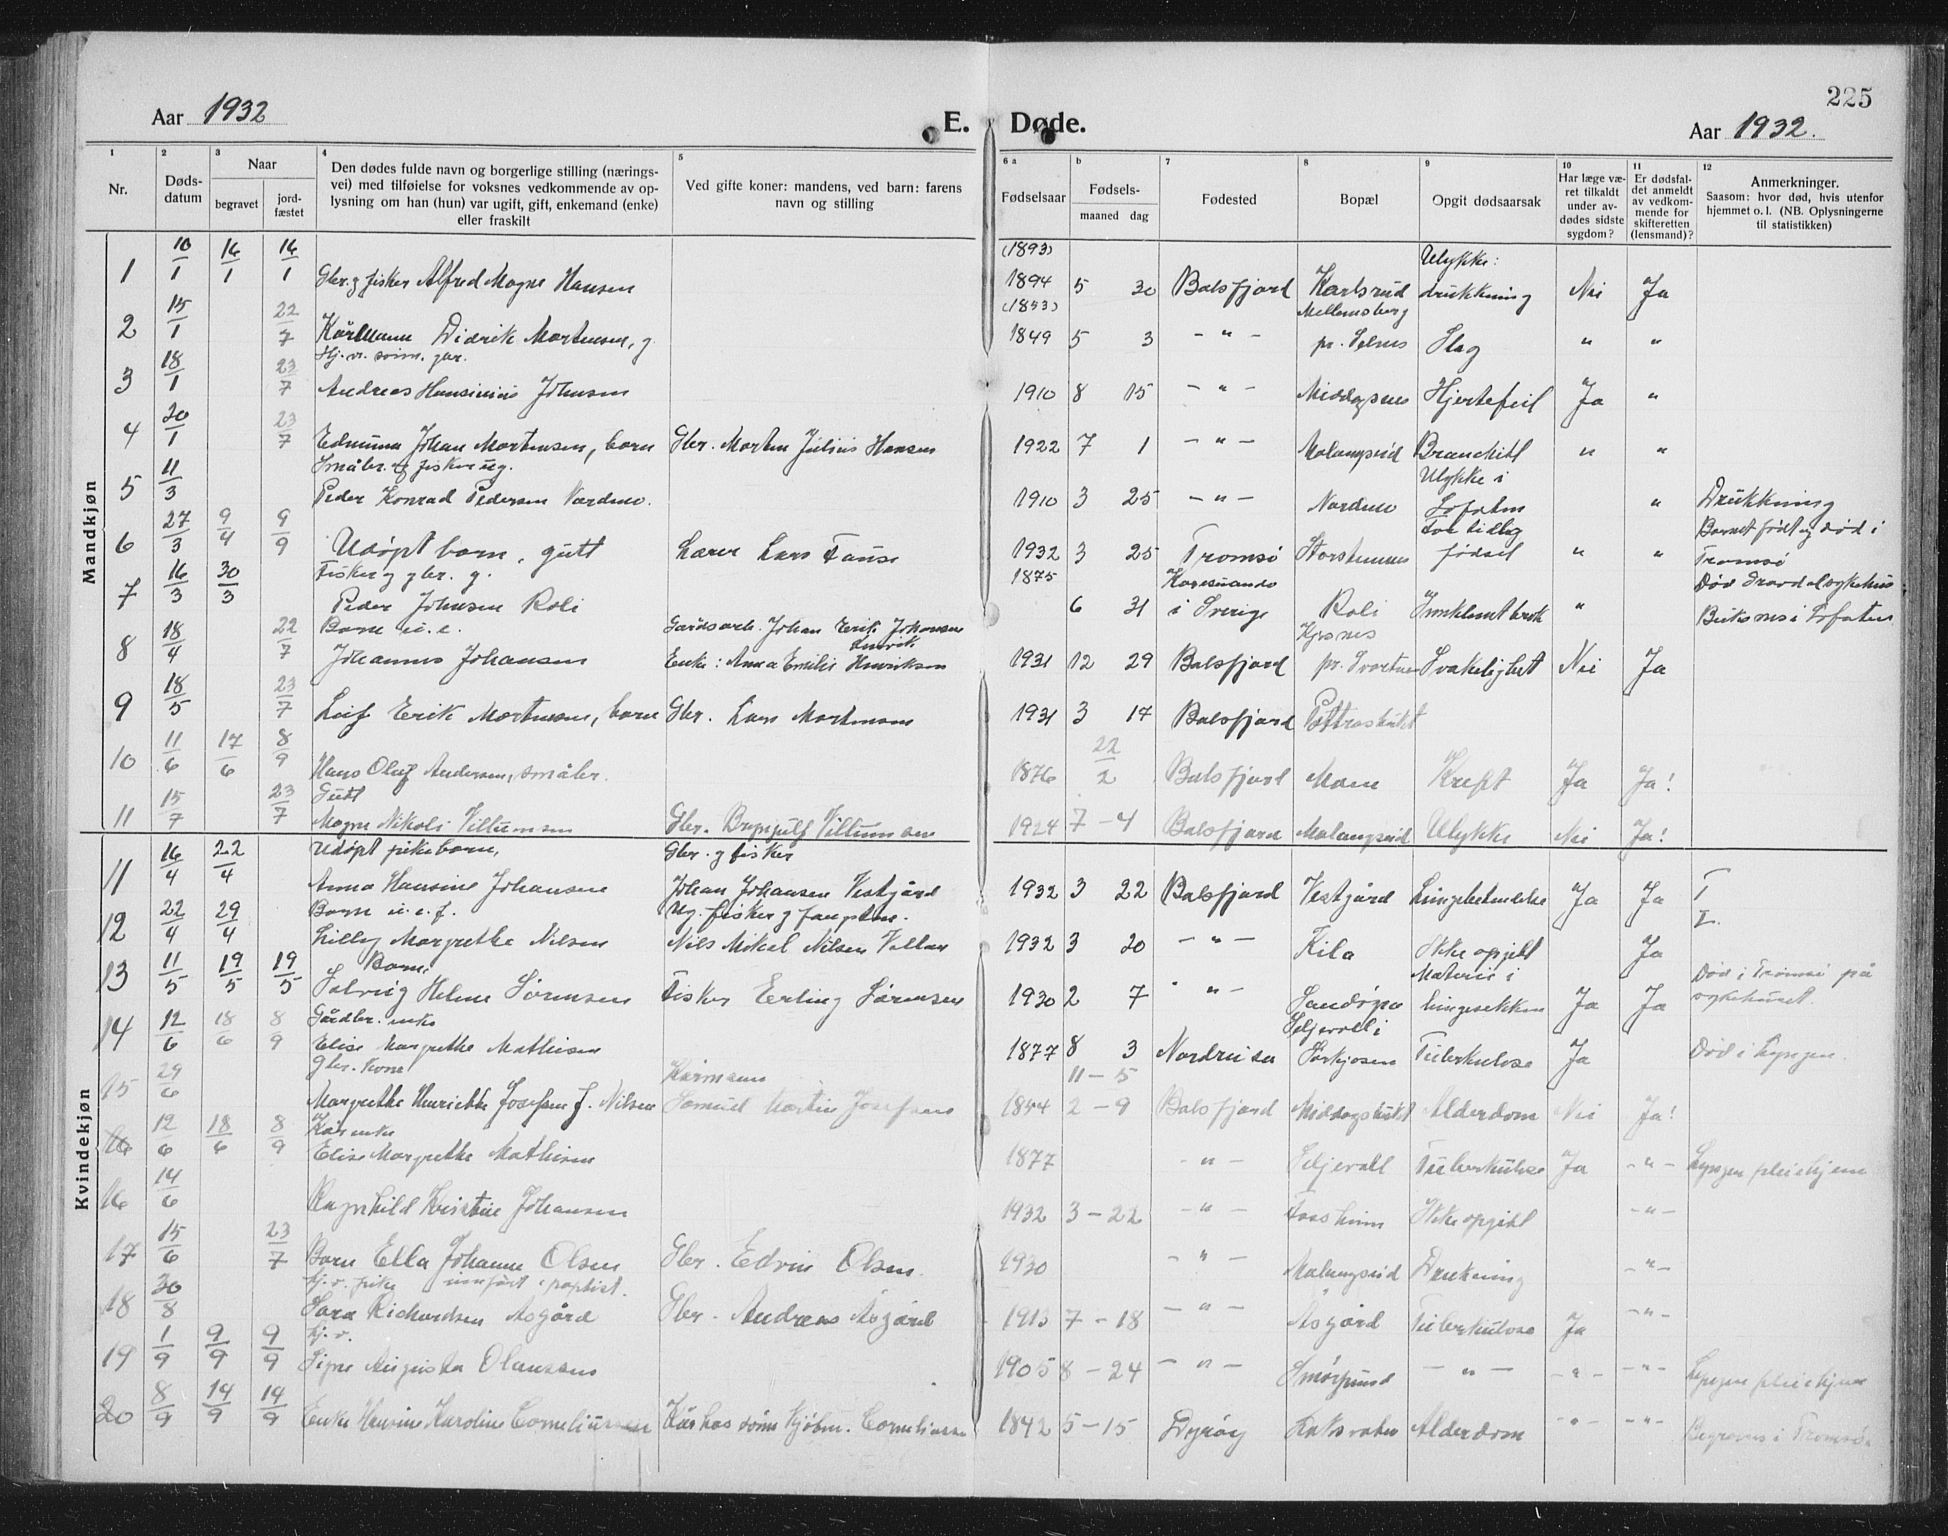 225
Aar 1932
E. Døde.
Aar 1932.
1 2 3 4 5 6 a b 7 8 9 10 11 12
Nr.
Døds-
datum
Naar
begravet
jord-
fæstet
Den dødes fulde navn og borgerlige stilling (nærings-
vei) med tilføielse for voksnes vedkommende av op-
lysning om han (hun) var ugift, gift, enkemand (enke)
eller fraskilt
Ved gifte koner: mandens, ved barn: farens
navn og stilling
Fødselsaar
Fødsels-
maaned dag
Fødested
Bopæl
Opgit dødsaarsak
Har læge væ-
ret tilkaldt
under av-
dødes sidste
sygdom?
Er dødsfal-
det anmeldt
av vedkom-
mende for
skifteretten
(lensmand)?
Anmerkninger.
Saasom: hvor død, hvis utenfor
hjemmet o. l. (NB. Oplysningerne
til statistikken)
Mandkjøn
(1893) Ulykke:
1 10/1 16/1 16/1 Gbr. g fisker Alfred Magne Hansen 1894 5 30 Balsfjord Karlsrud drukkning Nei Ja
(1853) Mellemsberg
2 15/1 22/7 Kårmann Didrik Mortensen, g 1849 5 3 — " — pr. Selnes Slag " "
3 18/1 23/7 Andreas Hansinius Johnsen 1910 8 15 — " — Middagsnes Hjertefeil Ja "
4 20/1 23/7 Edmund Johan Mortensen, barn Gbr. Morten Julius Hansen 1922 7 1 — " — Malangseid " "
Småbr. og fisker ug. Ulykke i
5 11/3 Peder Konrad Pedersen Nordmo. 1910 3 25 — " — Nordmo Lofoten " Drukkning
For tidlig Barnet født og død i
6 27/3 9/4 9/9 Udøpt barn, gutt Lærer Lars Fause 1932 3 25 Tromsø Storsteinnes fødsel " " Tromsø
Fisker g gbr. g. 1875
7 16/3 30/3 Peder Johnsen Roli 6 31 i Sverige Roli Inneklemt brok " Buksnes i Lofoten
Barn u. e. Gårdsarb. Johan Erik Johansen
8 18/4 22/7 Johannes Johansen Enke: Anna Emilie Henriksen 1931 12 29 Balsfjord pr. Svartnes Svakelighet Nei Ja
9 18/5 23/7 Leif Erik Mortensen, barn Gbr. Lars Mortensen 1931 3 17 Balsfjord
10 11/6 17/6 8/9 Hans Oluf Andersen, småbr. 1876 22/2 Balsfjord Moen Kreft Ja Ja!
Gutt
11 15/7 23/7 Magne Nikoli Villumsen Gbr. Brynjulf Villumsen 1924 7 – 4 Balsfjord Malangseid Ulykke Nei Ja!
Kvindekjøn
Udøpt pikebarn, Gbr. g fisker
11 16/4 22/4 Anna Hansine Johansen Johan Johansen Vestgård 1932 3 22 Balsfjord Vestgård Lungebetendelse Ja Ja T
Barn u. e. f. Ug. fisker g
12 22/4 29/4 Lilly Margrethe Nilsen Nils Mikal Nilsen 1932 3 20 — " — Kila Ikke opgitt Ja I.
Barn: Materie i Død i Tromsø på
13 11/5 19/5 19/5 Solveig Helene Sørensen Fisker Erling Sørensen 1930 2 7 " " — lungesekken Ja Ja sykehuset.
Gårdbr. enke Seljevoll i
14 12/6 18/6 8/9 Elise Margrethe Mathisen 1877 8 3 Nordreisa Sørkjosen Tuberkulose Ja Død i Lyngen.
Gbr. Kone Kårmann 11 – 5
15 29/6 Margrethe Henriette Josefsen f. Nilsen Samuel Martin Josefsen 1854 2 – 9 Balsfjord Alderdom Nei Ja!
Kårenke
16 12/6 18/6 8/9 Elise Margrethe Mathisen 1877 – " – Seljevoll Tuberkulose Ja – " – Lyngen pleiehjem
16 14/6 Ragnhild Kristine Johansen 1932 3 – 22 – " – Fossheim Ikke opgitt – " –
17 15/6 23/7 Barn Ella Johanne Olsen Gbr. Edvin Olsen. 1930 – " – Malangseid Drukning – " –
hj. v. pike
18 30/8 Sara Richardsen Åsgård Gbr. Andreas Åsgård 1913 7 – 18 — " — Åsgård Tuberkulose Ja – " –
hj. v.
19 1/9 9/9 9/9 Signe Augusta Olaussen 1905 8 – 24 — " — — " — – " – – " – Lyngen pleiehjem
20 8/9 14/9 14/9 Enke Hansine Karoline Corneliussen 1842 5 – 15 Dyrøy Alderdom – " – – " – Begraves i Tromsø